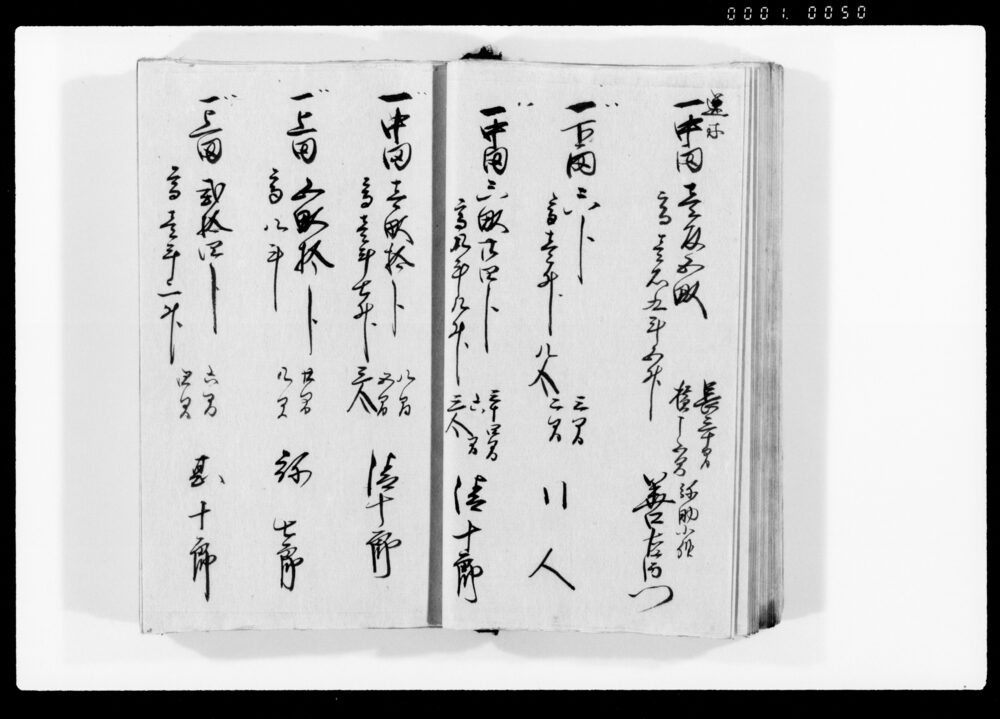 0001.0050
一中田 壱反五畝
高壱石五斗五升
長三十間
横十五間
弥助小作
善左衛門
一下田 六卜
高壱升
三間
二間
八人
一中田 三畝廿四卜
高五斗九升
三十四間
清十郎
一中田 壱畝拾卜
高壱斗七升
八間
五間
清十郎
一上田 五畝拾卜
高八斗
廿間
八間
弥七郎
一上田 弐拾四卜
高壱斗二升
六間
四間
甚十郎